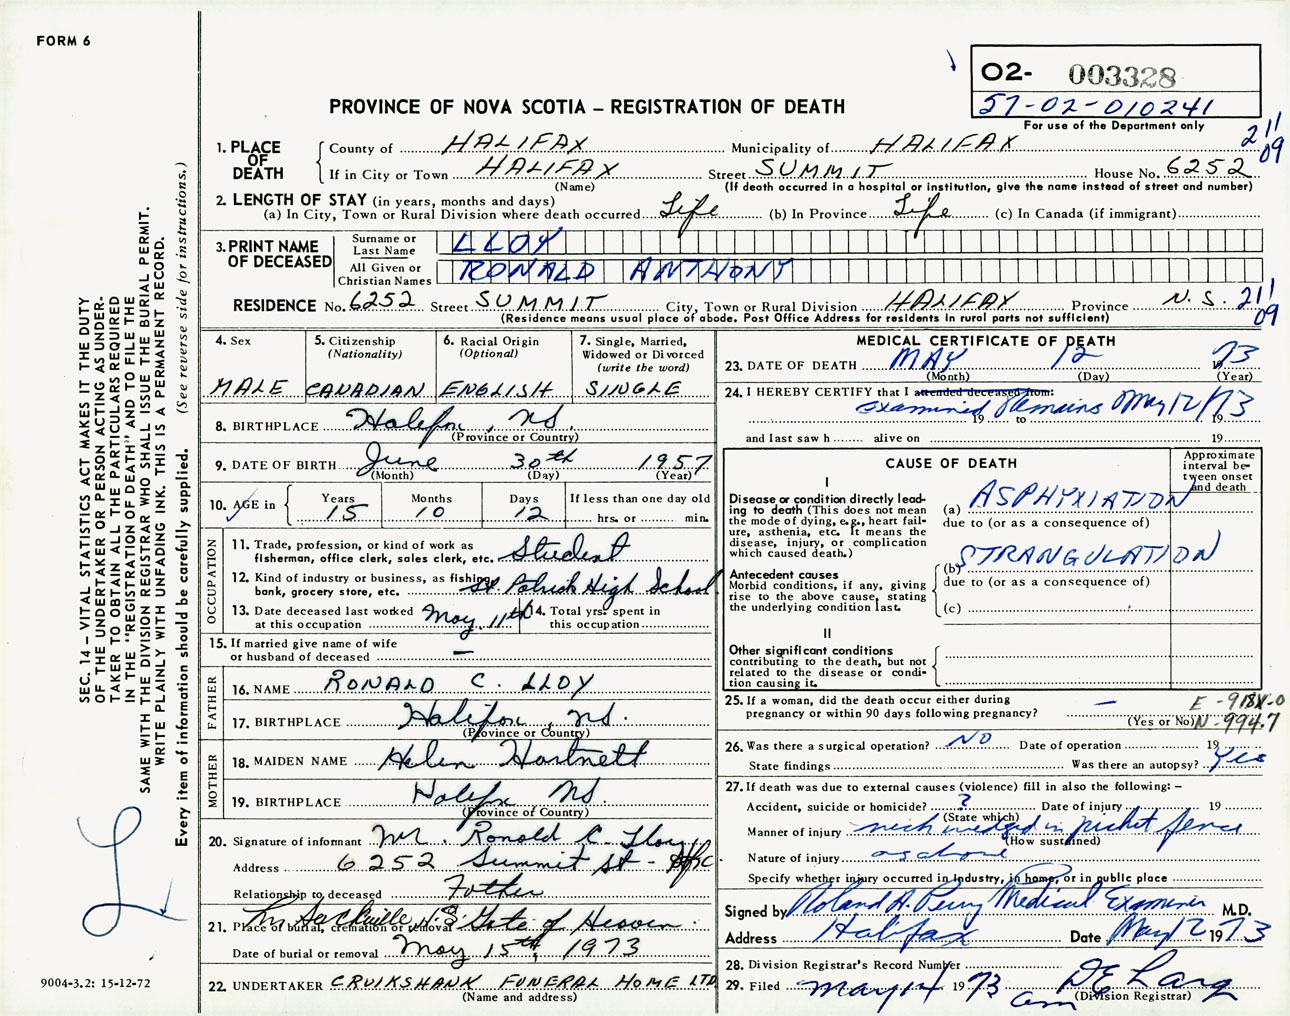 FORM 6
O2- 003328
57-02-010241
For use of the Department only
PROVINCE OF NOVA SCOTIA – REGISTRATION OF DEATH
211
09
1. PLACE OF DEATH
County of HALIFAX Municipality of HALIFAX
If in City or Town HALIFAX Street SUMMIT House No. 6252
(Name) (If death occurred in a hospital or institution, give the name instead of street and number)
2. LENGTH OF STAY (in years, months and days)
(a) In City, Town or Rural Division where death occurred Life (b) In Province Life (c) In Canada (if immigrant)
3. PRINT NAME OF DECEASED
Surname or Last Name LLOY
All Given or Christian Names RONALD ANTHONY
RESIDENCE No. 6252 Street SUMMIT City, Town or Rural Division HALIFAX Province N.S. 211
09
(Residence means usual place of abode. Post Office Address for residents in rural parts not sufficient)
4. Sex MALE
5. Citizenship (Nationality) CANADIAN
6. Racial Origin (Optional) ENGLISH
7. Single, Married, Widowed or Divorced (write the word) SINGLE
8. BIRTHPLACE Halifax, NS.
(Province or Country)
9. DATE OF BIRTH June 30th 1957
(Month) (Day) (Year)
10. AGE in Years 15 Months 10 Days 12 If less than one day old hrs. or min.
OCCUPATION
11. Trade, profession, or kind of work as fisherman, office clerk, sales clerk, etc. Student
12. Kind of industry or business, as fishing, bank, grocery store, etc. St. Patrick High School
13. Date deceased last worked at this occupation May 11th
14. Total yrs. spent in this occupation
15. If married give name of wife or husband of deceased –
FATHER
16. NAME RONALD C. LLOY
17. BIRTHPLACE Halifax, NS.
(Province or Country)
MOTHER
18. MAIDEN NAME Helen Hartnett
19. BIRTHPLACE Halifax NS.
(Province of Country)
20. Signature of informant Mr. Ronald C. Lloy
Address 6252 Summit St - Hfx.
Relationship to deceased Father
21. Place of burial, cremation or removal Lr. Sackville N.S. Gate of Heaven
Date of burial or removal May 15th, 1973
22. UNDERTAKER CRUIKSHANK FUNERAL HOME LTD
(Name and address)
MEDICAL CERTIFICATE OF DEATH
23. DATE OF DEATH MAY 12 1973
(Month) (Day) (Year)
24. I HEREBY CERTIFY that I attended deceased from:
examined Remains May 12/73
19 to 19
and last saw h alive on 19
CAUSE OF DEATH
Approximate interval between onset and death
I
Disease or condition directly leading to death (This does not mean the mode of dying, e.g., heart failure, asthenia, etc. It means the disease, injury, or complication which caused death.)
(a) ASPHYXIATION
due to (or as a consequence of)
Antecedent causes
Morbid conditions, if any, giving rise to the above cause, stating the underlying condition last.
(b) STRANGULATION
due to (or as a consequence of)
(c)
II
Other significant conditions
contributing to the death, but not related to the disease or condition causing it.
25. If a woman, did the death occur either during pregnancy or within 90 days following pregnancy? –
(Yes or No)
N-994.7
26. Was there a surgical operation? NO Date of operation 19
State findings Was there an autopsy? Yes
27. If death was due to external causes (violence) fill in also the following: –
Accident, suicide or homicide? ? Date of injury 19
(State which)
Manner of injury neck wedged in picket fence
(How sustained)
Nature of injury as above
Specify whether injury occurred in industry, in home, or in public place
Signed by Roland A. Perry Medical Examiner M.D.
Address Halifax Date May 12 1973
28. Division Registrar's Record Number
29. Filed May 14 1973
(Division Registrar)
SEC. 14 – VITAL STATISTICS ACT MAKES IT THE DUTY
OF THE UNDERTAKER OR PERSON ACTING AS UNDER-
TAKER TO OBTAIN ALL THE PARTICULARS REQUIRED
IN THE "REGISTRATION OF DEATH" AND TO FILE THE
SAME WITH THE DIVISION REGISTRAR WHO SHALL ISSUE THE BURIAL PERMIT.
WRITE PLAINLY WITH UNFADING INK. THIS IS A PERMANENT RECORD.
Every item of information should be carefully supplied. (See reverse side for instructions.)
9004-3.2: 15-12-72